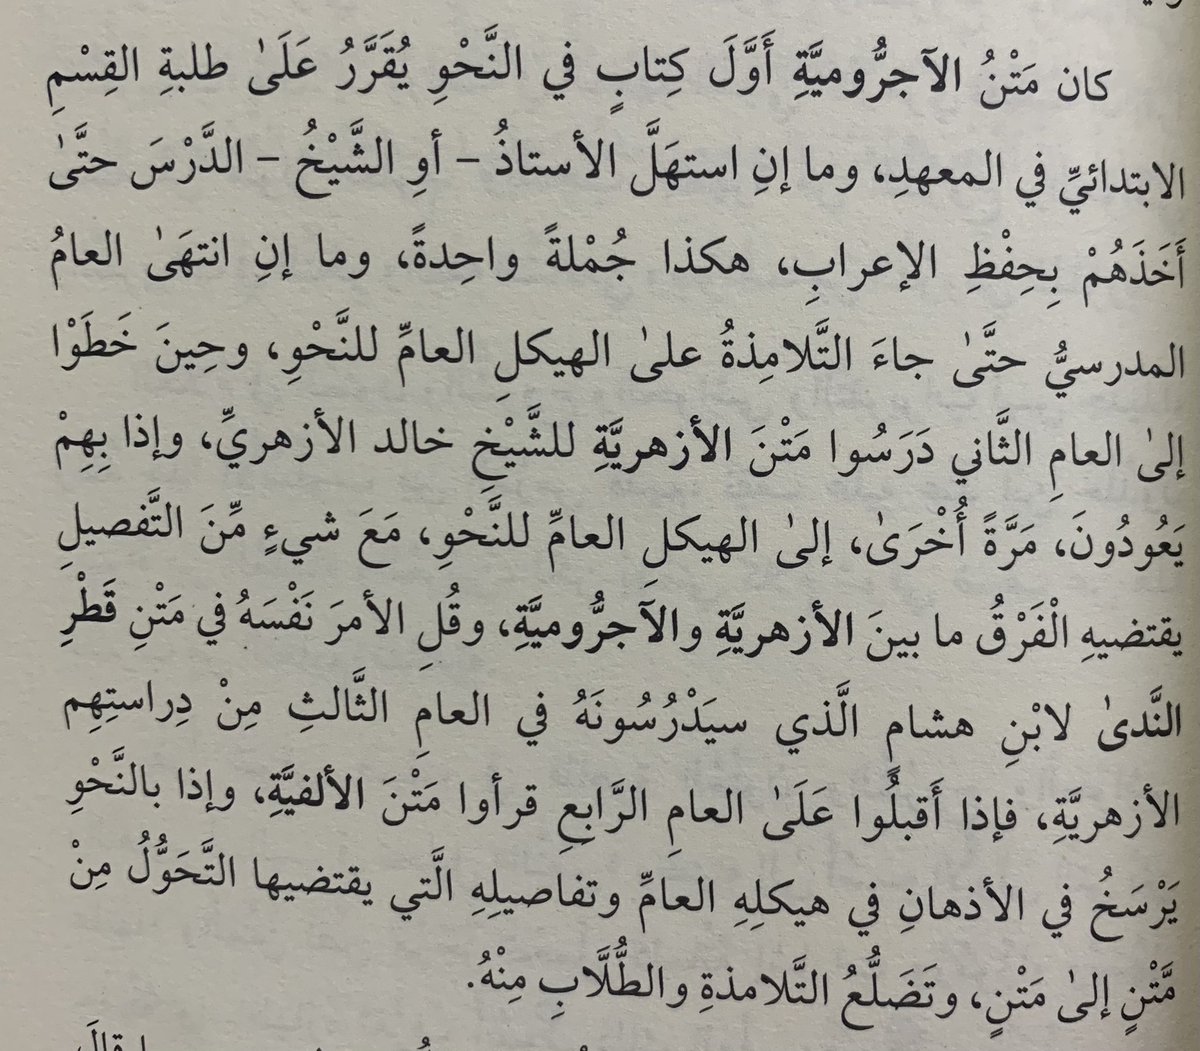 كان مَتْنُ الآجرُّوميَّةِ أَوَّلَ كِتابٍ في النَّحْوِ يُقَرَّرُ عَلَىٰ طلبةِ القِسْمِ
الابتدائيِّ في المعهدِ، وما إنِ استهَلَّ الأستاذُ – أوِ الشَّيْخُ – الدَّرْسَ حتَّىٰ
أَخَذَهُمْ بِحِفْظِ الإعرابِ، هكذا جُمْلةً واحِدةً، وما إنِ انتهَىٰ العامُ
المدرسيُّ حتَّىٰ جاءَ التَّلامِذةُ علىٰ الهيكلِ العامِّ للنَّحْوِ، وحِينَ خَطَوْا
إلىٰ العامِ الثَّاني دَرَسُوا مَتْنَ الأزهريَّةِ للشَّيْخِ خالد الأزهريِّ، وإذا بِهِمْ
يَعُودُونَ، مَرَّةً أُخْرَىٰ، إلىٰ الهيكلِ العامِّ للنَّحْوِ، مَعَ شيءٍ مِّنَ التَّفصيلِ
يقتضيهِ الْفَرْقُ ما بينَ الأزهريَّةِ والآجرُّوميَّةِ، وقُلِ الأمرَ نَفْسَهُ في مَتْنِ قَطْرِ
النَّدىٰ لابْنِ هشامٍ الَّذي سيَدْرُسُونَهُ في العامِ الثَّالثِ مِنْ دِراستِهِم
الأزهريَّةِ، فإذا أَقبلُوا عَلَىٰ العامِ الرَّابعِ قرأوا مَتْنَ الألفيَّةِ، وإذا بالنَّحْوِ
يَرْسَخُ في الأذهانِ في هيكلِهِ العامِّ وتفاصيلِهِ الَّتي يقتضيها التَّحَوُّلُ مِنْ
مَّتْنٍ إلىٰ مَتْنٍ، وتَضَلُّعُ التَّلامذةِ والطُّلَّابِ مِنْهُ.